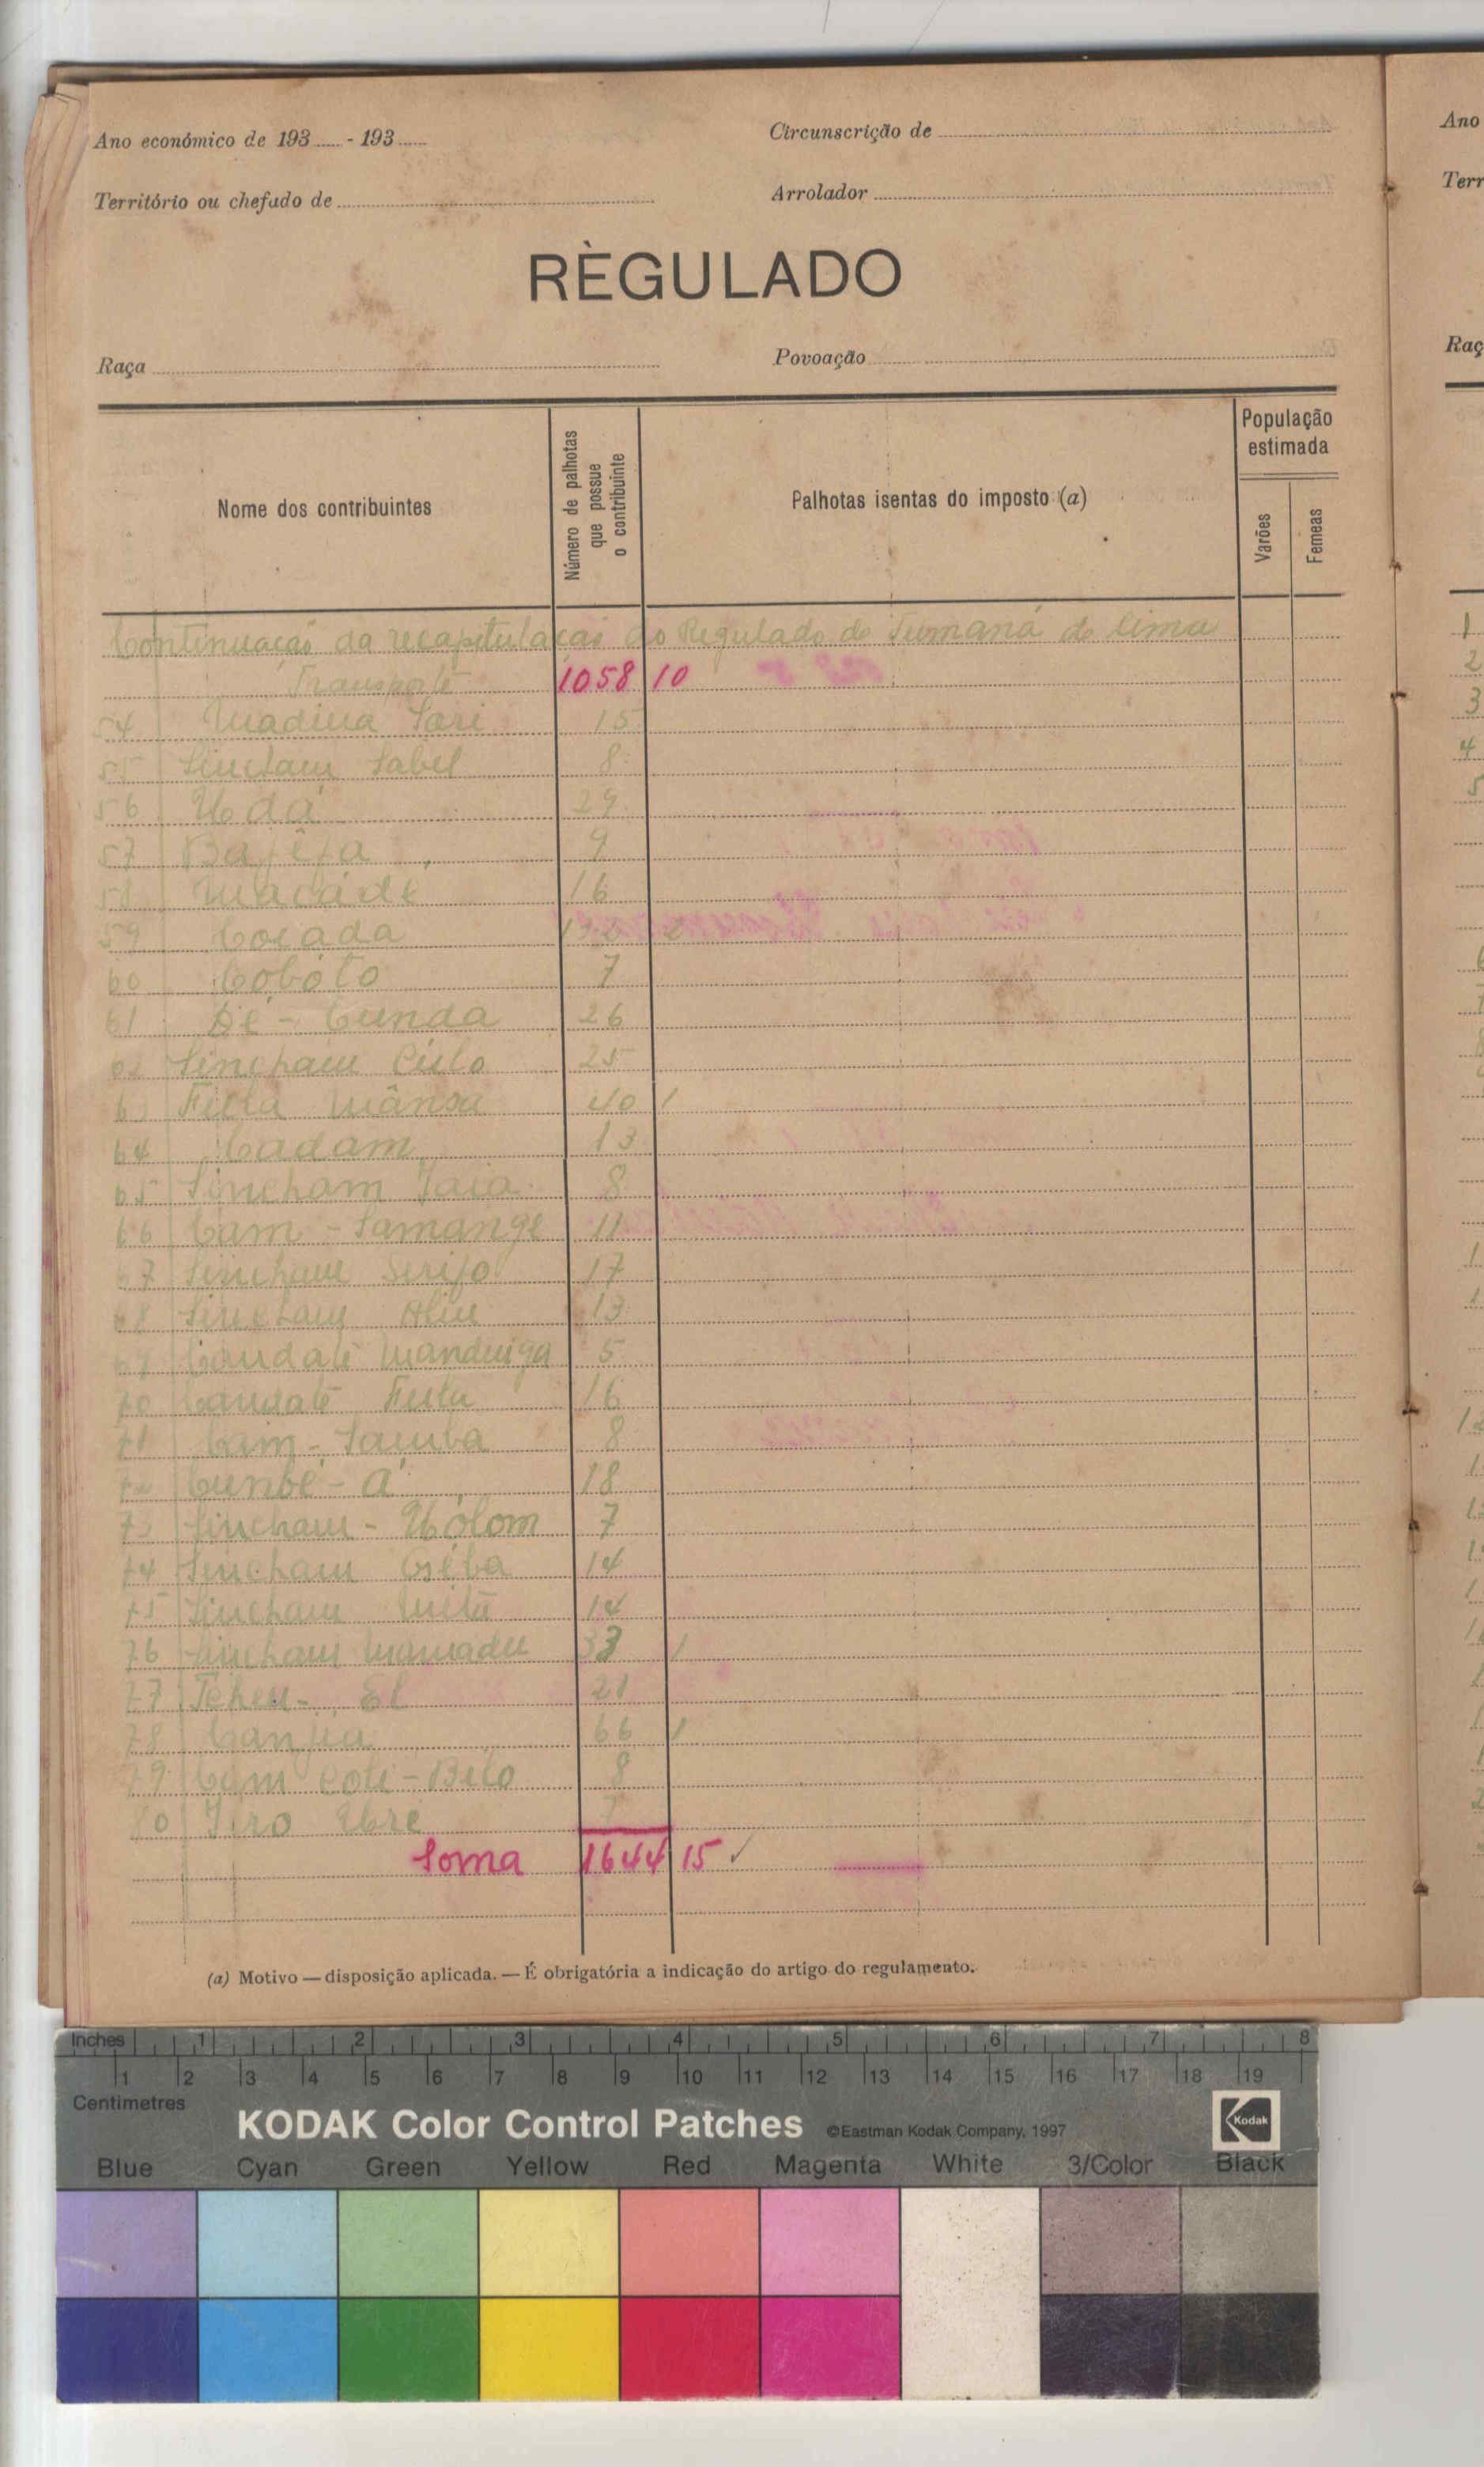 Ano económico de 193 - 193
Circunscrição de
Território ou chefado de
Arrolador
RÈGULADO
Raça
Povoação
Nome dos contribuintes
Número de palhotas que possue o contribuinte
Palhotas isentas do imposto (a)
População estimada
Varões
Femeas
Continuação da recapitulação do Regulado de Tumaná de Cima
Transporte 1058 10
54 Madina Sari 15
55 Sincham Sabel 8
56 29
57 Bajéja 9
58 Macáde 16
59 Coiada 2
60 Cobóto 7
61 Dé - Cunda 26
62 Sincham Ciilo 25
63 Futa Mânsa 40 1
64 Cadam 13
65 Sincham Jaia 8
66 Cam - Samange 11
67 Sincham Serifo 17
68 Sincham Aliu 13
69 Candalé Mandinga 5
70 Candalé Futa 16
71 Cam - Samba 8
72 Cunbé - A 18
73 Sincham - Hólom 7
74 Sincham Géba 14
75 Sincham Mita 14
76 Sincham Mamadu 33 1
77 Tcheu - El 21
78 Canjia 66 1
79 Cam Coli - Bilo 8
80 Jiro
Soma 1644 15 ✓
(a) Motivo — disposição aplicada. — É obrigatória a indicação do artigo do regulamento.
Ano
Terr
Raç
1
2
3
4
5
Inches 1 2 3 4 5 6 7 8
1 2 3 4 5 6 7 8 9 10 11 12 13 14 15 16 17 18 19
Centimetres
KODAK Color Control Patches ©Eastman Kodak Company, 1997 Kodak
Blue Cyan Green Yellow Red Magenta White 3/Color Black